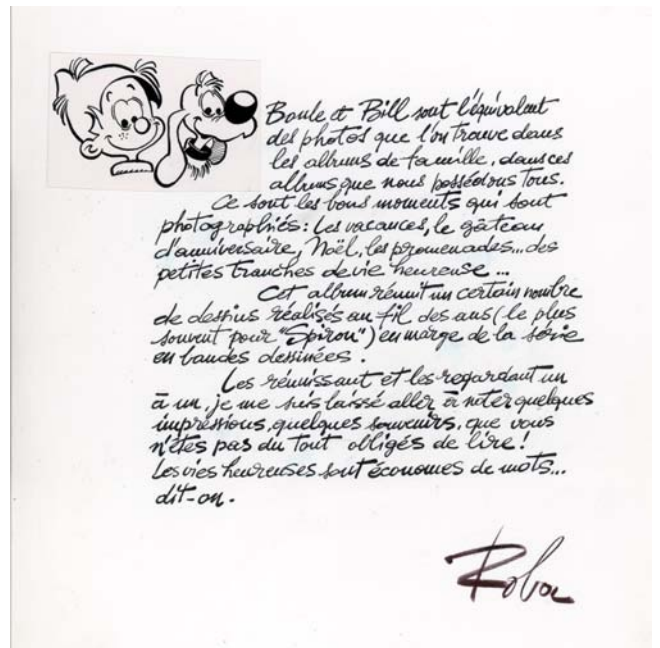 Boule et Bill sont l'équivalent
des photos que l'on trouve dans
les albums de famille, dans ces
albums que nous possédons Tous.
Ce sont les bons moments qui sont
photographiés : Les vacances, le gâteau
d'anniversaire, Noël, les promenades... des
petites tranches de vie heureuse ...
Cet album réunit un certain nombre
de dessins réalisés au fil des ans (le plus
souvent pour "Spirou") en marge de la série
en bandes dessinées .
Les réunissant et les regardant un
à un, je me suis laissé aller à noter quelques
impressions, quelques souvenirs, que vous
n'êtes pas du Tout obligés de lire !
Les vies heureuses sont économes de mots...
dit-on .
Roba